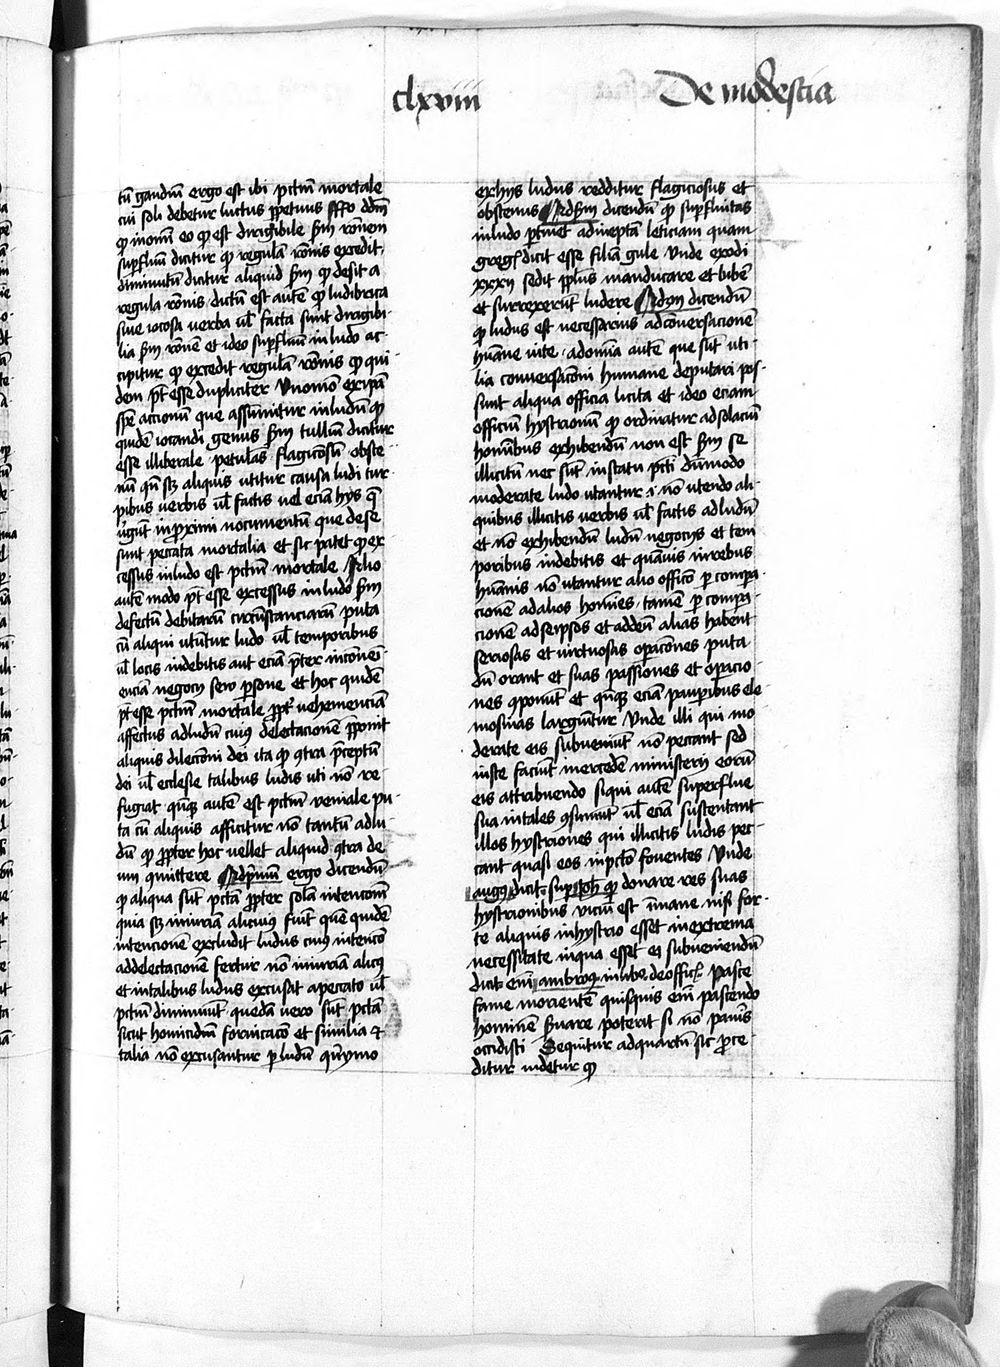 clxviii
De modestia
tū gaudiū ergo est ibi pctm̄ mortale
cui soli debetur luctus ꝑpetuus ddm̄
ꝙ inom̄i eo ꝙ est dirigibile scd̄m rōnem
suꝑfluū dicitur ꝙ regulā rōnis excedit
diminutū dicitur aliquid scd̄m ꝙ desit a
regula rōnis dictū est autē ꝙ ludibria
siue iocosa uerba ul̄ facta sunt dirigibi
lia scd̄m rōnē et ideo suꝑfluū in ludo ac
cipitur ꝙ excedit regulā rōnis ꝙ qui
dem pt̄ esse dupliciter Vnomō ex ip̄a
spē accionū que assumitur in ludū ꝙ
quidē iocandi genus scd̄m tulliū dicitur
esse illiberale petulās flagiciosū obsce
nū qn̄ scz aliquis utitur causa ludi tur
pibus uerbis ul̄ factis uel eciā hys q̄
ūgūt in ꝓximi nocumentū que de se
sunt peccata mortalia et sic patet ꝙ ex
cessus in ludo est pctm̄ mortale Alio
autē modo pt̄ esse excessus in ludo scd̄m
defectū debitarū circūstanciarū puta
cū aliqui utūtur ludo ul̄ temporibus
ul̄ locis indebitis aut eciā p̄ter incōuei
enciā negocy seu ꝑsone et hoc quidē
pt̄ esse pctm̄ mortale ꝓpt̄ uehemenciā
affectus ad ludū cuiꝰ delectacionē p̄ponit
aliquis dilecc̄oni dei ita ꝙ ꝯtra p̄ceptū
dei ul̄ ecclesie talibus ludis uti nō re
fugiat qn̄qꝫ autē est pctm̄ ueniale pu
ta cū aliquis afficitur nō tantū ad lu
dū ꝙ ꝓpter hoc uellet aliquid ꝯtra de
um ꝯmittere Ad primū ergo dicendū
ꝙ aliqua sūt pctā ꝓpter solā intencōm
quia scz iniuriā alicuius fiūt quē quidē
intencionē excludit ludus cuiꝰ intencō
ad delectacionē fertur nō iniuriā alicꝰ
et in talibus ludus excusat a peccato ul̄
pctm̄ diminuit quedā uero sūt pctā
sicut homicidiū fornicacō et similia &
talia nō excusantur ꝑ ludū qn̄ymo
ex hys ludus redditur flagiciosus et
obscenus Ad scd̄m dicendū ꝙ suꝑfluitas
in ludo ꝑtinet ad ineptā leticiam quam
gregꝰ dicit esse filiā gule Vnde exodi
xxxii sedit ppl̄us manducare et bibē
et surrexerūt ludere Ad 3m dicendū
ꝙ ludus est necessarius ad cōuersacionē
hūane uite ad om̄ia autē que sūt uti
lia conuersac̄oni humane deputari pos
sunt aliqua officia licita et ideo eciam
officiū hystrionū ꝙ ordinatur ad solaciū
hom̄ibus exhibendū non est scd̄m se
illicitū nec sūt in statu pcti dūmodo
moderate ludo utantur .i. nō utendo ali
quibus illicitis uerbis ul̄ factis ad ludū
et nō exhibendū ludū negocys et tem
poribus indebitis et quāuis in rebus
hūanis nō utantur alio officō ꝑ compa
cionē ad alios homīes tamē ꝑ compa
cionē ad seipsos et ad deū alias habent
seriosas et uirtuosas oꝑacōnes puta
dū orant et suas passiones et oꝑacio
nes ꝯponūt et qn̄qꝫ eciā pauꝑibus ele
mosinas largiūtur Vnde illi qui mo
derate eis subueniūt nō peccant sed
iuste faciūt mercedē ministery eorū
eis attribuendo si qui autē superflue
sua in tales ꝯsumūt ul̄ eciā sustentant
illos hystriones qui illicitis ludis pec
cant quasi eos in pctō fouentes Vnde
augꝰ dicit super Ioh ꝙ donare res suas
hystrionibus uiciū est īmane nisi for
te aliquis in hystrio esset in extrema
necessitate in qua esset ei subueniendū
dicit em̄ ambrosꝰ in libꝫ de offic Pasce
fame morientē quisquis em̄ pascendo
hominē suare poterit si nō pauīs
occidisti Sequitur ad quartū sic ꝓce
ditur uidetur ꝙ